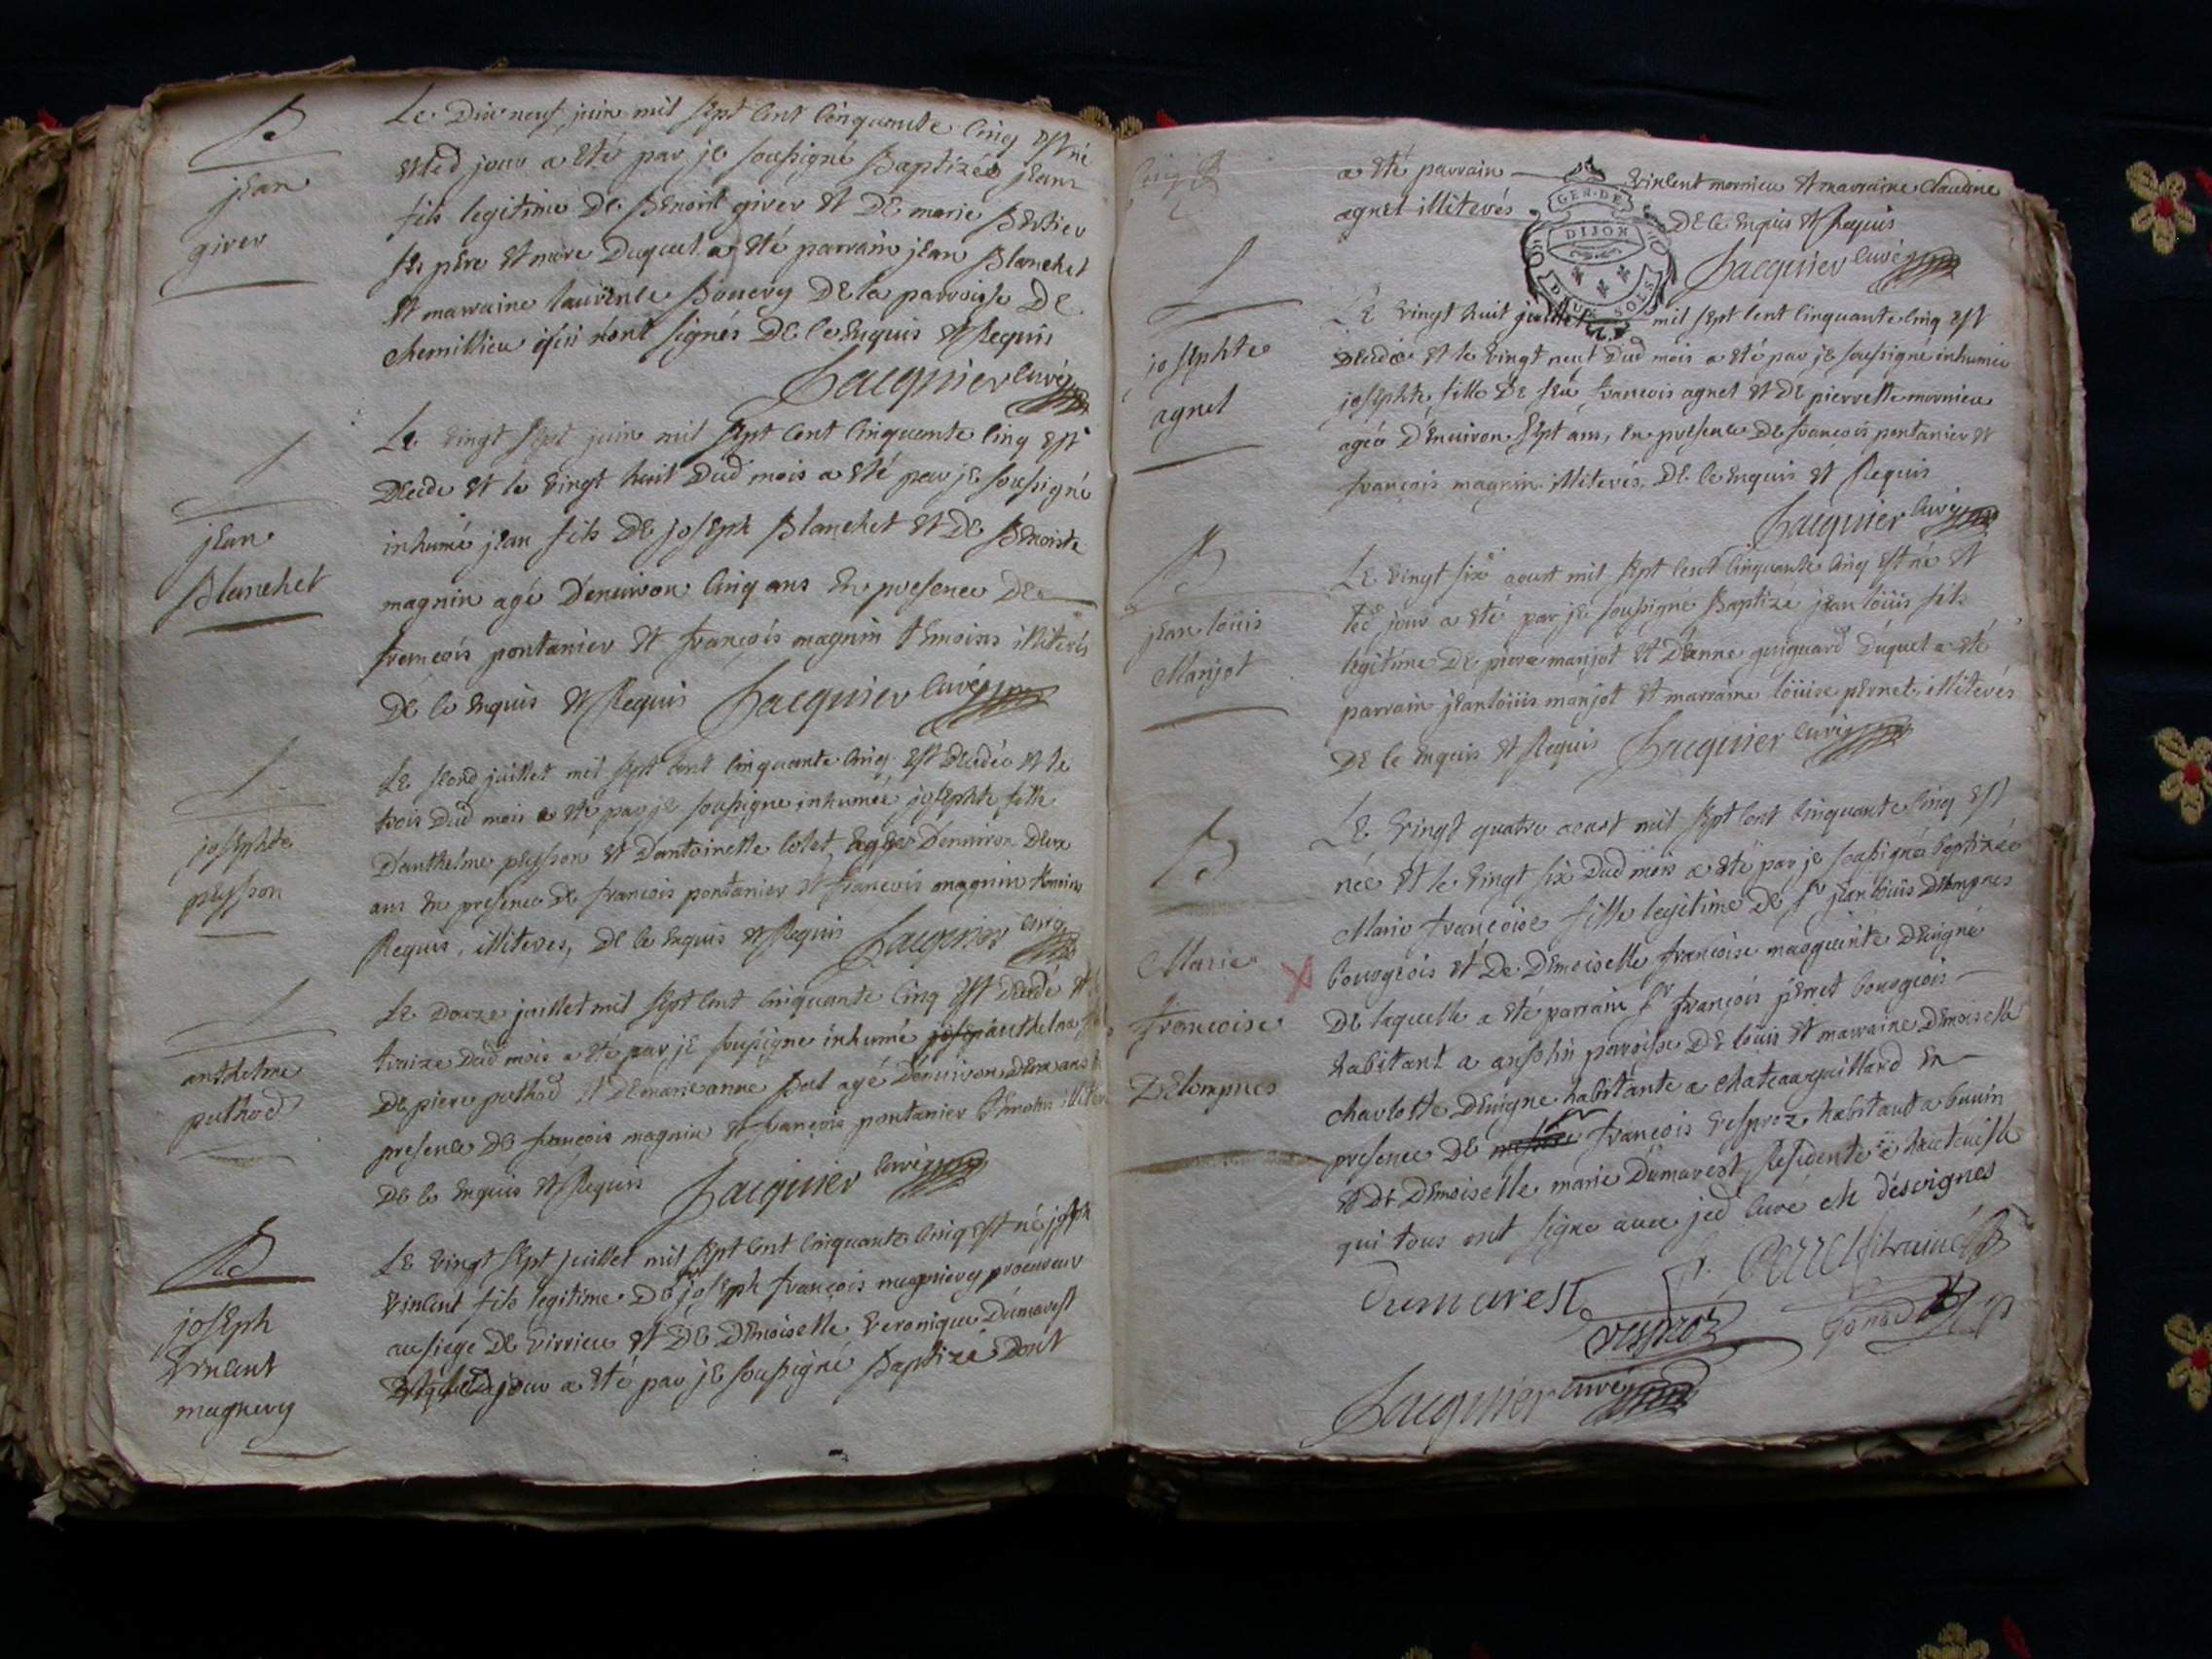 B
jean
giver
Le Dix neuf juin mil sept cent cinquante cinq est né
et led jour a eté par je soussigné Baptizé jean
fils legitime De Benoit giver et De marie Bertier
ses père et mère Duquel a eté parrain jean Blanchet
et marraine laurence Bouvery De la parroisse De
chemillieu qui n'ont signés De ce enquis et Requis
Jacquier curé
S
jean
Blanchet
Le vingt sept juin mil sept cent cinquante cinq est
Decédé et le vingt huit Dud mois a eté par je soussigné
inhumé jean fils De joseph Blanchet et De Benoiste
magnin agé Denviron cinq ans En presence De
françois pontanier et françois magnin temoins illiterés
De ce enquis et Requis Jacquier curé
S
josephte
peysson
Le second juillet mil sept cent cinquante cinq est Decédée et le
trois Dud mois a eté par je soussigné inhumée josephte fille
D'anthelme peysson et D'antoinette Colet, agée Denviron Deux
ans En presence De francois pontanier et francois magnin temoins
Requis, illiteres, De ce enquis et Requis Jacquier curé
S
anthelme
puthod
Le Douze juillet mil sept cent cinquante cinq est Decédé et le
traize Dud mois a eté par je soussigné inhumé anthelme fils
De piere puthod et De marie anne agé Denviron Deux ans En
presence De francois magnin et françois pontanier temoins illiteres
De ce enquis et Requis Jacquier curé
B
joseph
vincent
magnin
Le vingt sept juillet mil sept cent cinquante cinq est né joseph
vincent fils legitime De Sr joseph françois magnin procureur
au siege De virrieu et De Demoiselle veronique Dumarest
jour a eté par je soussigné Baptizé Dont
a eté parrain vincent mornieu et marraine claudine
agnet illiterés De ce enquis et Requis
GEN. DE
DIJON
DEUX SOLS
Jacquier curé
S
josephte
agnet
Le vingt huit juillet mil sept cent cinquante cinq est
Decédée et le vingt neuf Dud mois a eté par je soussigné inhumée
josephte fille De feu francois agnet et De pierrette mornieu
agée D'Environ sept ans, en presence De francois pontanier et
françois magnin illiterés, De ce enquis et Requis
Jacquier curé
B
jean loüis
Marijot
Le vingt six aoust mil sept cent cinquante cinq est né et
led jour a eté par je soussigné Baptizé jean loüis fils
legitime De piere marijot et D'anne guiguard Duquel a eté
parrain jean loüis marijot et marraine loüise pernet, illiterés
De ce enquis et Requis Jacquier curé
B
Marie
francoise
Delompnes
Le vingt quatre aoust mil sept cent cinquante cinq est
née et le vingt six Dud mois a eté par je soussigné baptizée
Marie françoise fille legitime De Sr jean loüis Delompnes
bourgeois et De Demoiselle francoise Devigne
De laquelle a eté parrain Sr françois perret bourgeois
habitant a parroisse De et marraine Demoiselle
charlotte Devigne habitante a chateaugaillard En
presence De Sr françois vesproz habitant a
et De Demoiselle marie Dumarest Residente a hauteville
qui tous ont signé avec jed curé ch désvignes
Dumarest
Jacquier curé